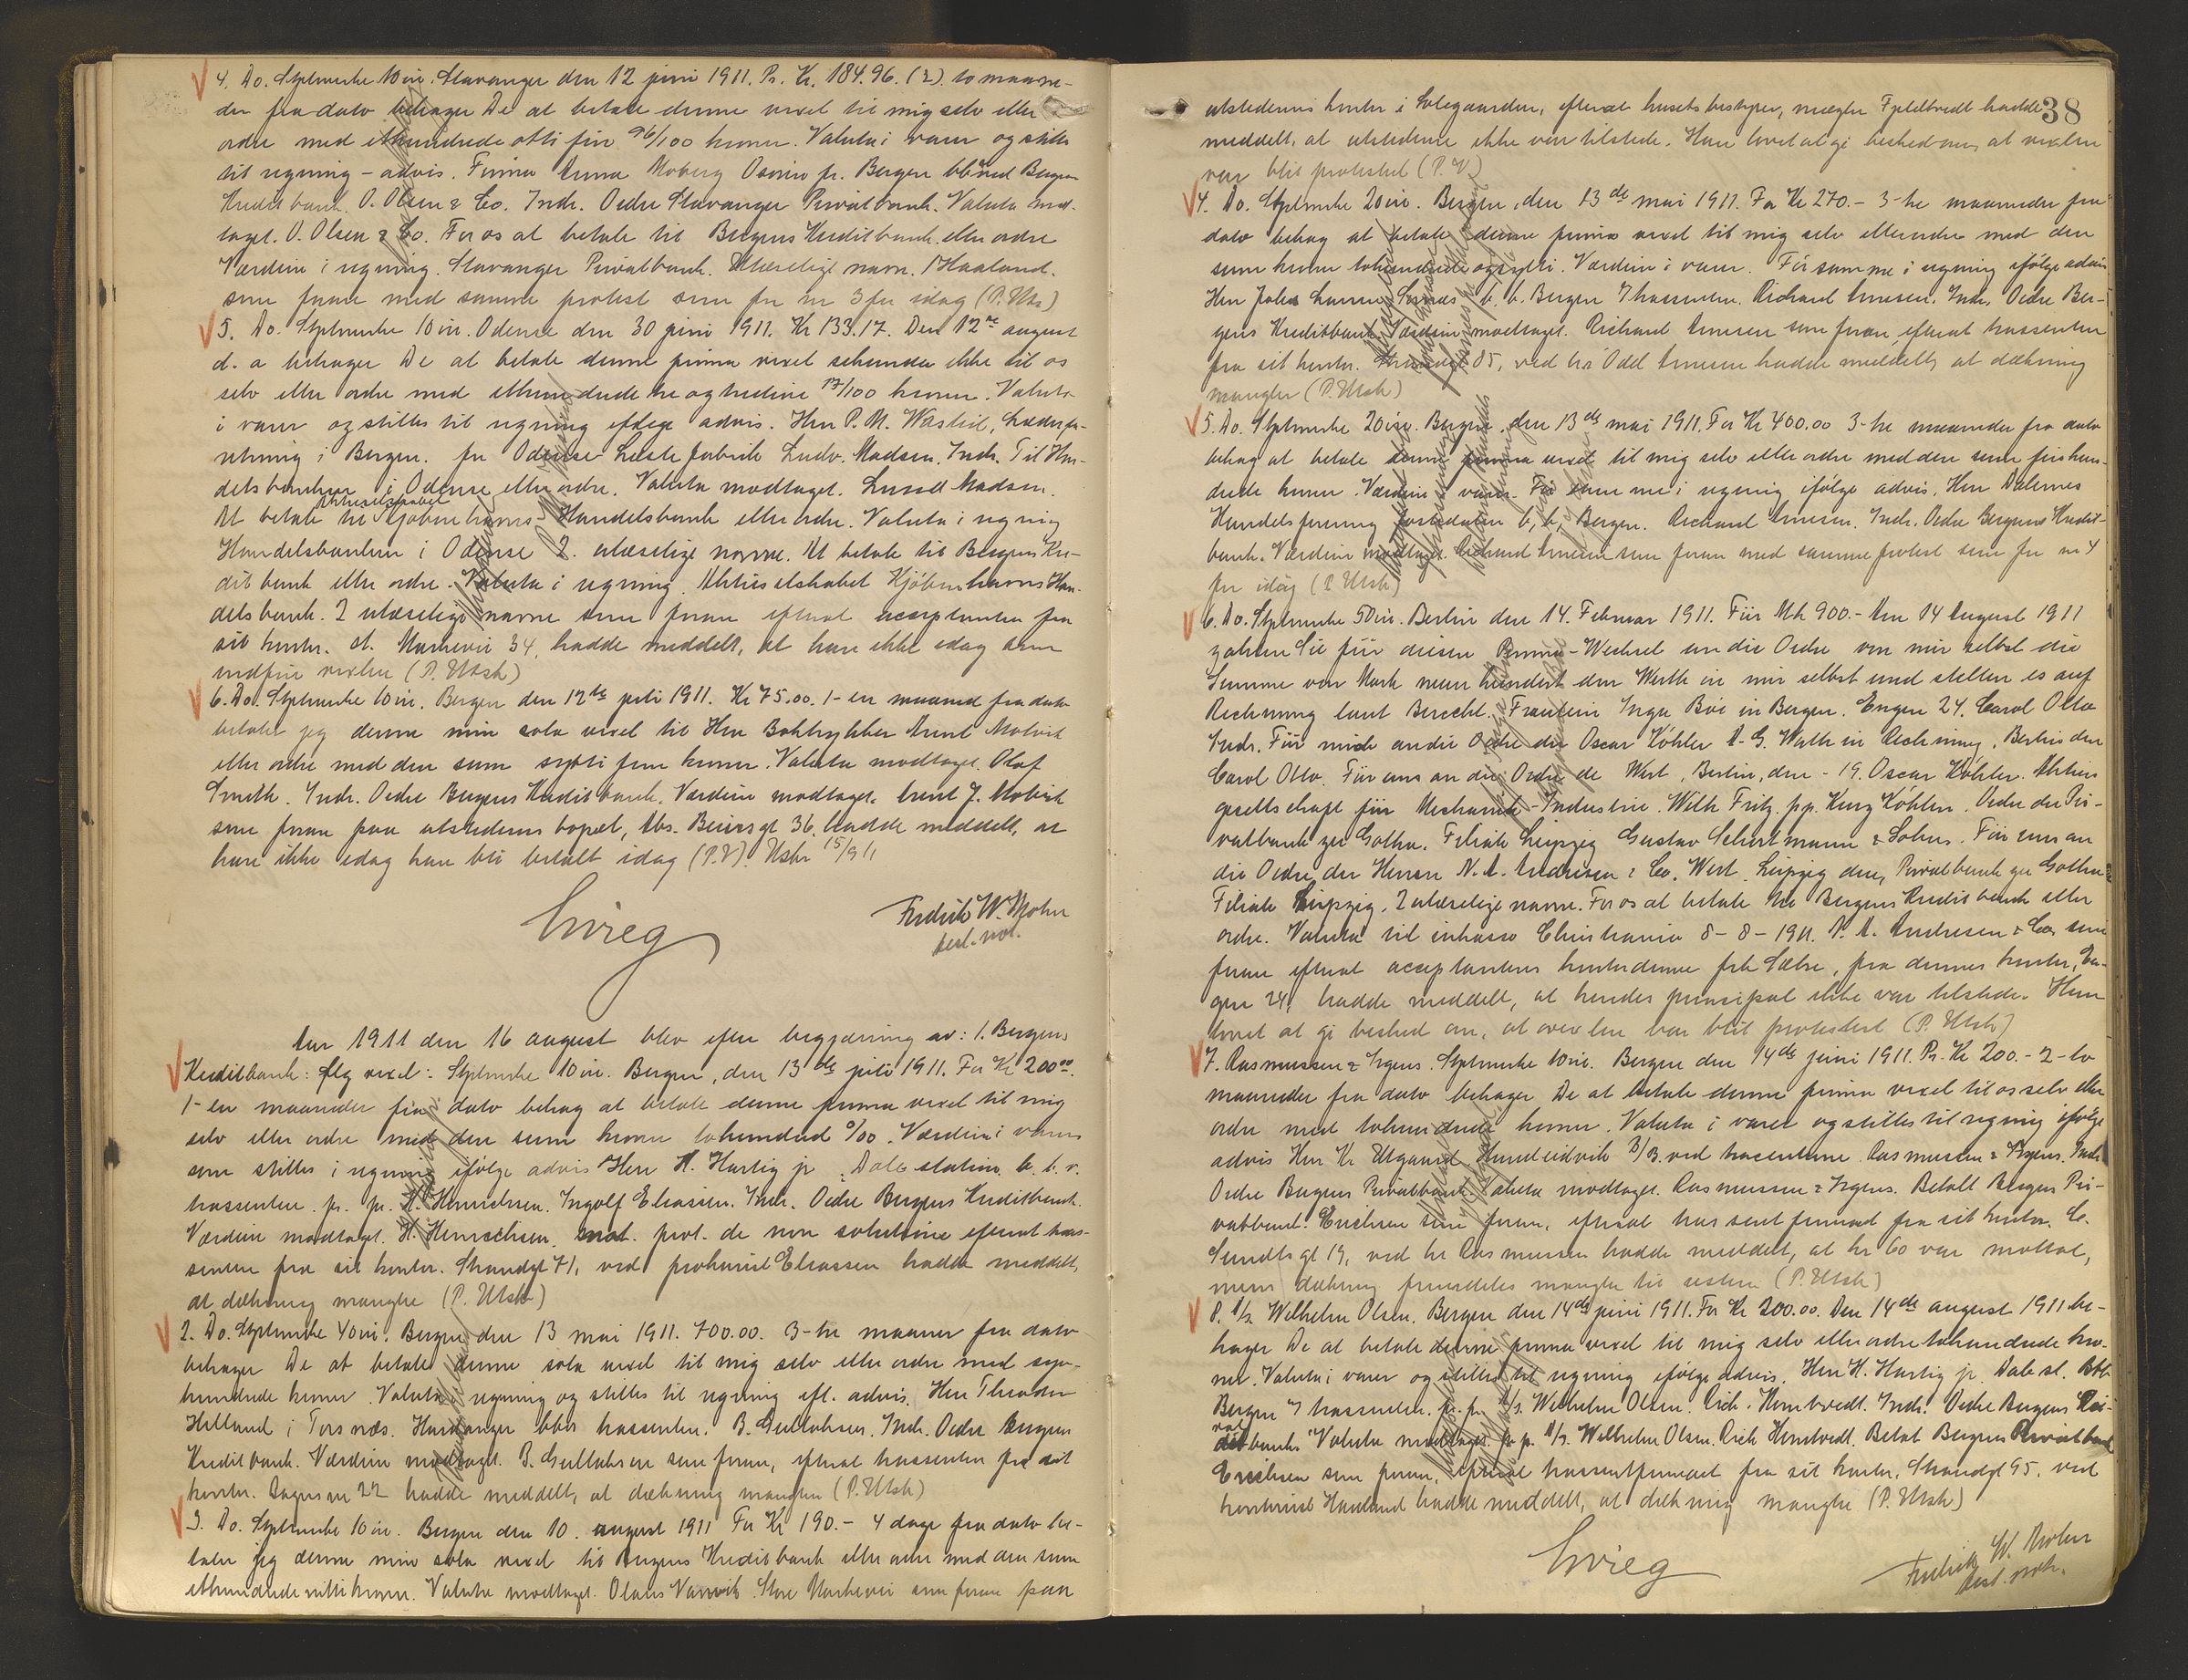 4. Do. Stplmerke 10 øre. Stavanger den 12 juni 1911. Pr. Kr. 184.96. (2) to maane-
der fra dato behager De at betale denne vexel til mig selv eller
ordre med ethundrede otti fire 96/100 kroner. Valuta i varer og stilles
til regning - advis. Firma Anna Moberg Osøren pr. Bergen bbl ved Bergen
Kreditbank. O. Olsen & Co. Indr. Ordre Stavanger Privatbank. Valuta mod-
taget. O. Olsen & Co. For os at betale til Bergens Kreditbank eller ordre
Værdien i regning. Stavanger Privatbank. Ulæselige navn. Haaland.
som foran med samme protest som for nr 3 for idag (P. Utsk)
5. Do. Stplmerke 10 øre. Odense den 30 juni 1911. Kr 133.17. Den 12te august
d. a behager De at betale denne prima vexel sekunda ikke til os
selv eller ordre med ethundrede tre og tredive 17/100 kroner. Valuta
i varer og stilles til regning iflge advis. Herr P. M. Læderfor-
retning i Bergen. for Odense Læstefabrik Ludv. Madsen. Indr. Til Han-
delsbanken i Odense eller ordre. Valuta modtaget. Madsen.
Aktieselskabet
At betale til Kjøbenhavns Handelsbank eller ordre. Valuta i regning
Handelsbanken i Odense 2. ulæselige navne. At betale til Bergens Kre-
ditbank eller ordre. Valuta i regning. Aktieselskabet Kjøbenhavns Han-
delsbank. 2 ulæselige navne som foran efterat acceptanten fra
sit kontor. st. Markevei 34, hadde meddelt, at han ikke idag kan
indfri vexlen (P. Utsk)
6. Do. Stplmerke 10 øre. Bergen den 12te juli 1911. Kr 75.00. 1- en maaned fra dato
betaler jeg denne min sola vexel til Herr Boktrykker Arent
eller ordre med den sum sytti fem kroner. Valuta modtaget. Olaf
Smith. Indr. Ordre Bergens Kreditbank. Værdien modtaget. Arent J.
som foran paa utstederens bopæl, Abs. Beiers gt 36, hadde meddelt, at
han ikke idag kan bli betalt idag (P.V). Utskr 15/9 11
Fredrik W. Mohn
best. not.
Aar 1911 den 16 august blev efter begjæring av: 1. Bergens
Kreditbank: flg vexel: Stplmerke 10 øre. Bergen, den 13de juli 1911. For Kr 200.00.
1- en maaneder fra dato behag at betale denne prima vexel til mig
selv eller ordre med den sum kroner tohundred 0/00. Værdien i varer
som stilles i regning ifølge advis Herr H. Hartig jr Dale station b. b. v.
trassenten. pr. pr. H. Henrichsen. Ingolf Eliassen. Indr. Ordre Bergens Kreditbank.
Værdien modtaget. H. Henrichsen. not. prot. de non solutione efterat tras-
senten fra sit kontor. Strandgt 71, ved prokurist Eliassen hadde meddelt,
at dækning manglet (P. Utsk)
2. Do. Stplmerke 40 øre. Bergen den 13 mai 1911. 700.00. 3- tre maaner fra dato
behager De at betale denne sola vexel til mig selv eller ordre med syv-
hundrede kroner. Valuta i regning og stilles til regning efl. advis. Herr Theodor
Helland i Torsnæs. Hardanger bbet trassenten. B. Gullaksen. Indr. Ordre Bergens
Kreditbank. Værdien modtaget. B. Gullaksen som foran, efterat trassenten fra sit
kontor. nr 22 hadde meddelt, at dækning manglet (P. Utsk)
3. Do. Stplmerke 10 øre. Bergen den 10. august 1911 For Kr 190.- 4 dage fra dato be-
taler jeg denne min sola vexel til Bergens Kreditbank eller ordre med den sum
ethundrede nitti kroner. Valuta modtaget. Olaus Store Markevei som foran paa
38
utstederens kontor i Solegaarden, efterat husets bestyrer, mægler Fjeldtvedt hadde
meddelt, at utstederen ikke var tilstede. Han lovet at gi besked om, at vexlen
var blit protestert (P. V)
4. Do. Stplmerke 20 øre. Bergen, den 13de mai 1911. For Kr 270.- 3- tre maaneder fra
dato behag at betale denne prima vexel til mig selv eller ordre med den
sum kroner tohundrede og sytti. Værdien i varer. Før samme i regning ifølge advis
Herr Johs Larsen b. b. Bergen Trassenten. Richard Arnesen. Indr. Ordre Ber-
gens Kreditbank. Værdien modtaget. Richard Arnesen som foran, efterat trassenten
fra sit kontor. 85, ved hr Odd Arnesen hadde meddelt, at dækning
mangler (P. Utsk)
5. Do. Stplmerke 20 øre. Bergen, den 13de mai 1911. For Kr 400.00 3- tre maaneder fra dato
behag at betale denne prima vexel til mig selv eller ordre med den sum firehun-
drede kroner. Værdien i varer. Før samme i regning ifølge advis, Herr Dalernes
Handelsforening b, b, Bergen. Richard Arnesen. Indr. Ordre Bergens Kredit-
bank. Værdien modtaget. Richard Arnesen som foran med samme protest som for nr 4
for idag (P. Utsk)
6. Do. Stplmerke 50 øre. Berlin den 14. Februar 1911. Für Mk 900.- Am 14 August 1911
zahlen Sie für diesen Prima-Wechsel an die Ordre von mir selbst die
Summe von Mark neun hundert den Werth in mir selbst und stellen es auf
Rechnung laut Bericht. Fräulein Inga Bøe in Bergen. Engen 24. Carol Otto
Indr. Für mich an die Ordre der Oscar Köhler A-G. Werth in Rechnung, Berlin den
Carol Otto. Für uns an die Ordre de Wert, Berlin, den - 19. Oscar Köhler. Aktien
gesellschaft für Industrie. Wilh Fritz. pp. Kurz Köhler. Ordre der Pri-
vatbank zu Gotha. Filiale Leipzig Gustav & Sohns. Für uns an
die Ordre der Herren N. A. Andresen & Co. Wert. Leipzig den, Privatbank zu Gotha
Filiale Leipzig. 2 ulæselige navne. For os at betale til Bergens Kreditbank eller
ordre. Valuta til inkasso Christiania 8-8-1911. N. A. Andresen & Co. som
foran efterat acceptantens kontordame frk Sætre, fra dennes kontor, En-
gen 24, hadde meddelt, at hendes prinsipal ikke var tilstede. Hun
lovet at gi besked om, at vexlen var blit protestert (P. Utsk)
7. Rasmussen & Irgens. Stplmerke 10 øre. Bergen den 14de juni 1911. Pr. Kr 200.- 2- to
maaneder fra dato behager De at betale denne prima vexel til os selv eller
ordre med tohundrede kroner. Valuta i varer og stilles til regning ifølge
advis Herr Kr Utgaard Hundeidvik B/B. ved trassentene. Rasmussen & Irgens. Indr
Ordre Bergens Privatbank. Valuta modtaget. Rasmussen & Irgens. Betalt Bergens Pri-
vatbank. Erichsen som foran, efterat trassentfirmaet fra sit kontor. C.
Sundts gt 19, ved hr Rasmussen hadde meddelt, at kr 60 var mottat,
mens dækning fremdeles manglet til resten (P. Utsk)
8. A/S. Wilhelm Olsen. Bergen den 14de juni 1911. For Kr 200.00. Den 14de august 1911 be-
hager De at betale denne prima vexel til mig selv eller ordre tohundrede kro-
ner. Valuta i varer og stilles til regning ifølge advis. Herr H. Hartig jr. Dale st. Bbl
Bergen Trassenten. pr. pr A/S. Wilhelm Olsen. Rich. Indr. Ordre Bergens Pri-
vatbank. Valuta modtaget. pr p. A/S. Wilhelm Olsen. Rich Betal Bergens Privatbank
Erichsen som foran, efterat trassentfirmaet fra sit kontor, Strandgt 95, ved
kontorist Haaland hadde meddelt, at dækning manglet (P. Utsk)
Fredrik W. Mohn
best. not.